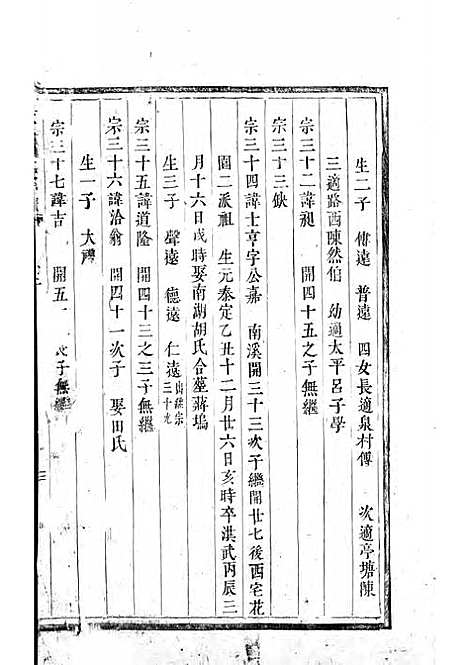 生二子 傅遠 普遠 四女長適泉村傅 次適亭塘陳
三適路西陳然伯 幼適太平呂子學
宗三十二諱昶 開四十五之子無繼
宗三十三缺
宗三十四諱士亨字公嘉 南溪開三十三次子繼開廿七後西宅花
園二派祖 生元泰定乙丑十二月廿六日亥時卒洪武丙辰三
月十六日戌時娶南湖胡氏合塟蔣塢
生三子 聲遠 德遠 仁遠出繼宗三十九
宗三十五諱道隆 開四十三之三子無繼
宗三十六諱洽翁 開四十一次子 娶田氏
生一子 大禪
宗三十七諱吉 開五十 次子無繼